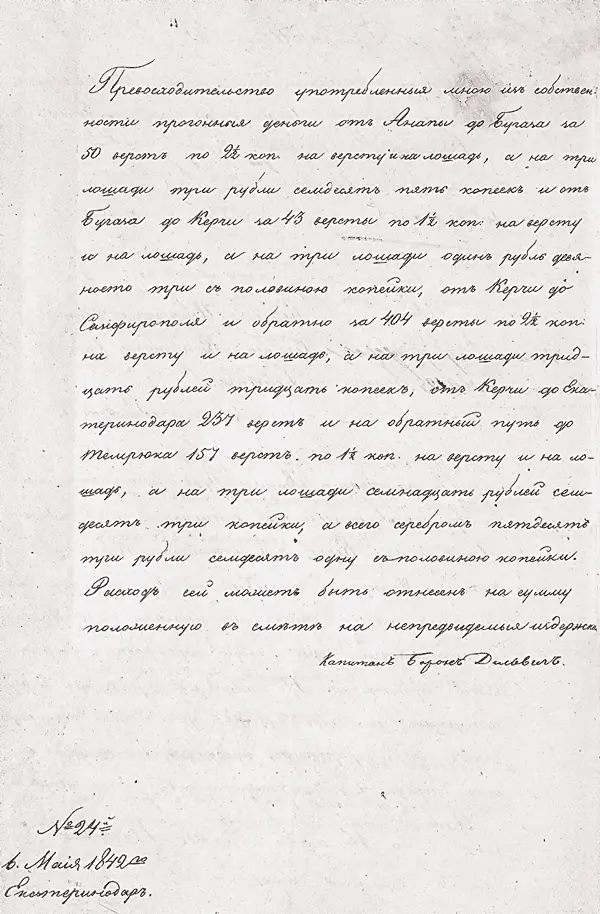 Превосходительство употребленныя мною изъ собствен-
ности прогонныя деньги отъ Анапы до Бугаза за
50 верстъ по 2½ коп. на версту и на лошадь, а на три
лошади три рубли семдесятъ пять копеекъ и отъ
Бугаза до Керчи за 43 версты по 1½ коп: на версту
и на лошадь, а на три лошади одинъ рубль девя-
носто три съ половиною копейки, отъ Керчи до
Симфирополя и обратно за 404 версты по 2½ коп:
на версту и на лошадь, а на три лошади трид-
цать рублей тридцать копеекъ, отъ Керчи до Ека-
теринодара 237 верстъ и на обратный путь до
Темрюка 157 верстъ. по 1½ коп. на версту и на ло-
шадь, а на три лошади семнадцать рублей сем-
десятъ три копейки, а всего серебромъ пятдесятъ
три рубли семдесятъ одну съ половиною копейки.
Расходъ сей можетъ быть отнесенъ на сумму
положенную въ смѣтѣ на непредвидемыя издержки
Капитанъ Баронъ Дельвигъ.
№ 24й
6. Маія 1842го
Екатеринодаръ.